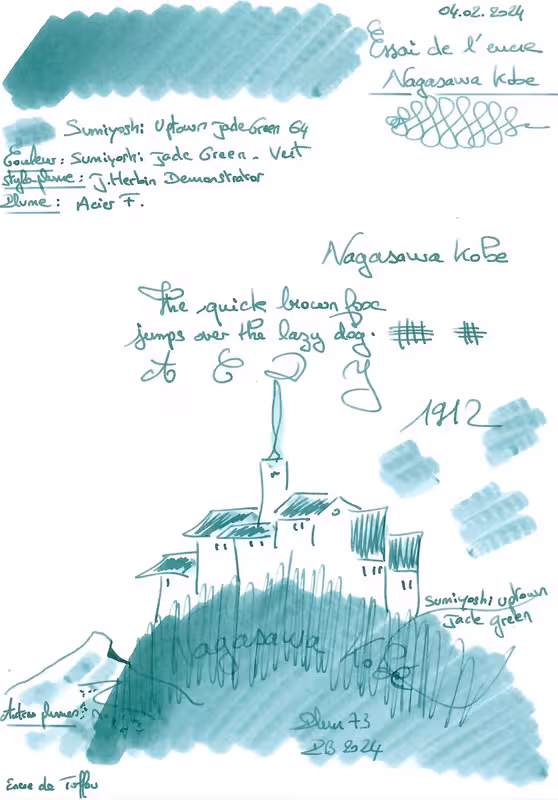 04.02.2024
Essai de l'encre
Nagasawa Kobe
Sumiyoshi Uptown Jade Green 64
Couleur : Sumiyoshi Jade Green - Vert
Stylo plume : J.Herbin Demonstrator
Plume : Acier F.
Nagasawa Kobe
The quick brown fox
jumps over the lazy dog.
A E D Y
1912
Sumiyoshi Uptown
Jade green
Nagasawa Kobe
Autres plumes
Plum 73
2024
Encre de Toffou